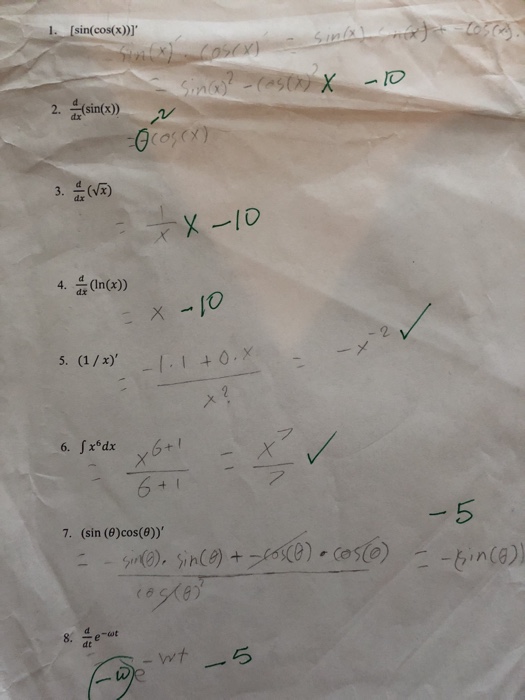 1. [sin(cos(x))]'
= sin(x)² - (cos(x))² X -10
2. d/dx (sin(x))
-2
= θ cos(x)
3. d/dx (√x)
= 1/x X -10
4. d/dx (ln(x))
= x -10
5. (1/x)'
= (-1·1 + 0·x)/x² = -x⁻² ✓
6. ∫x⁶dx
= x⁶⁺¹/(6+1) = x⁷/7 ✓
-5
7. (sin (θ)cos(θ))'
= (-sin(θ)·sin(θ) + -cos(θ)·cos(θ))/cos(θ)² = -(sin(θ))
8. d/dt e^-ωt
-w e^-wt -5